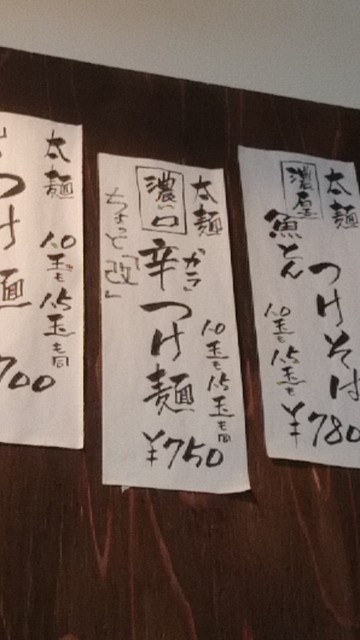 太麺
濃厚
魚とん
つけそば
1.0玉も
1.5玉も
¥780
太麺
濃い口
カラ
辛つけ麺
ちょっと「改」
1.0玉も
1.5玉も同
¥750
太麺
つけ麺
1.0玉も
1.5玉も同
700